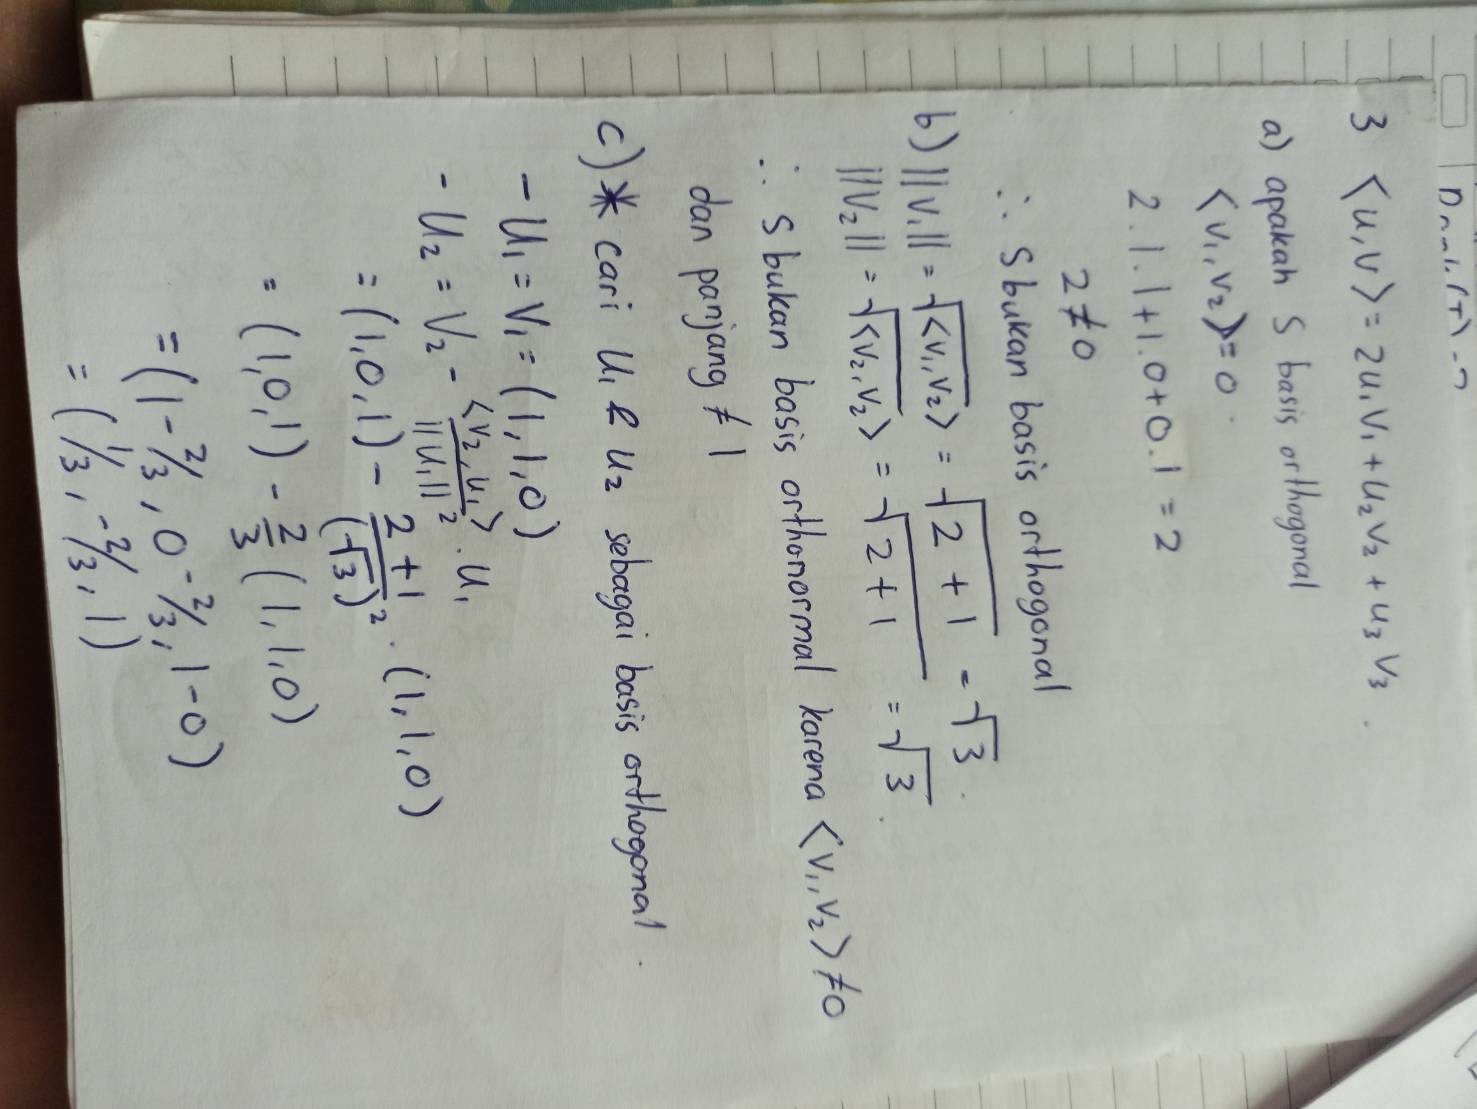 3 <u,v> = 2u₁v₁ + u₂v₂ + u₃v₃.
a) apakah S basis orthogonal
<v₁,v₂> = 0.
2.1.1 + 1.0 + 0.1 = 2
2 ≠ 0
∴ S bukan basis orthogonal
b) ||v₁|| = √<v₁,v₂> = √2+1 = √3.
||v₂|| = √<v₂,v₂> = √2+1 = √3.
∴ S bukan basis orthonormal karena <v₁,v₂> ≠ 0
dan panjang ≠ 1
c) * cari u₁ & u₂ sebagai basis orthogonal.
- u₁ = v₁ = (1,1,0)
- u₂ = v₂ - <v₂,u₁>/||u₁||² . u₁
= (1,0,1) - 2+1/(√3)² . (1,1,0)
= (1,0,1) - 2/3 (1,1,0)
= (1-2/3, 0-2/3, 1-0)
= (1/3, -2/3, 1)